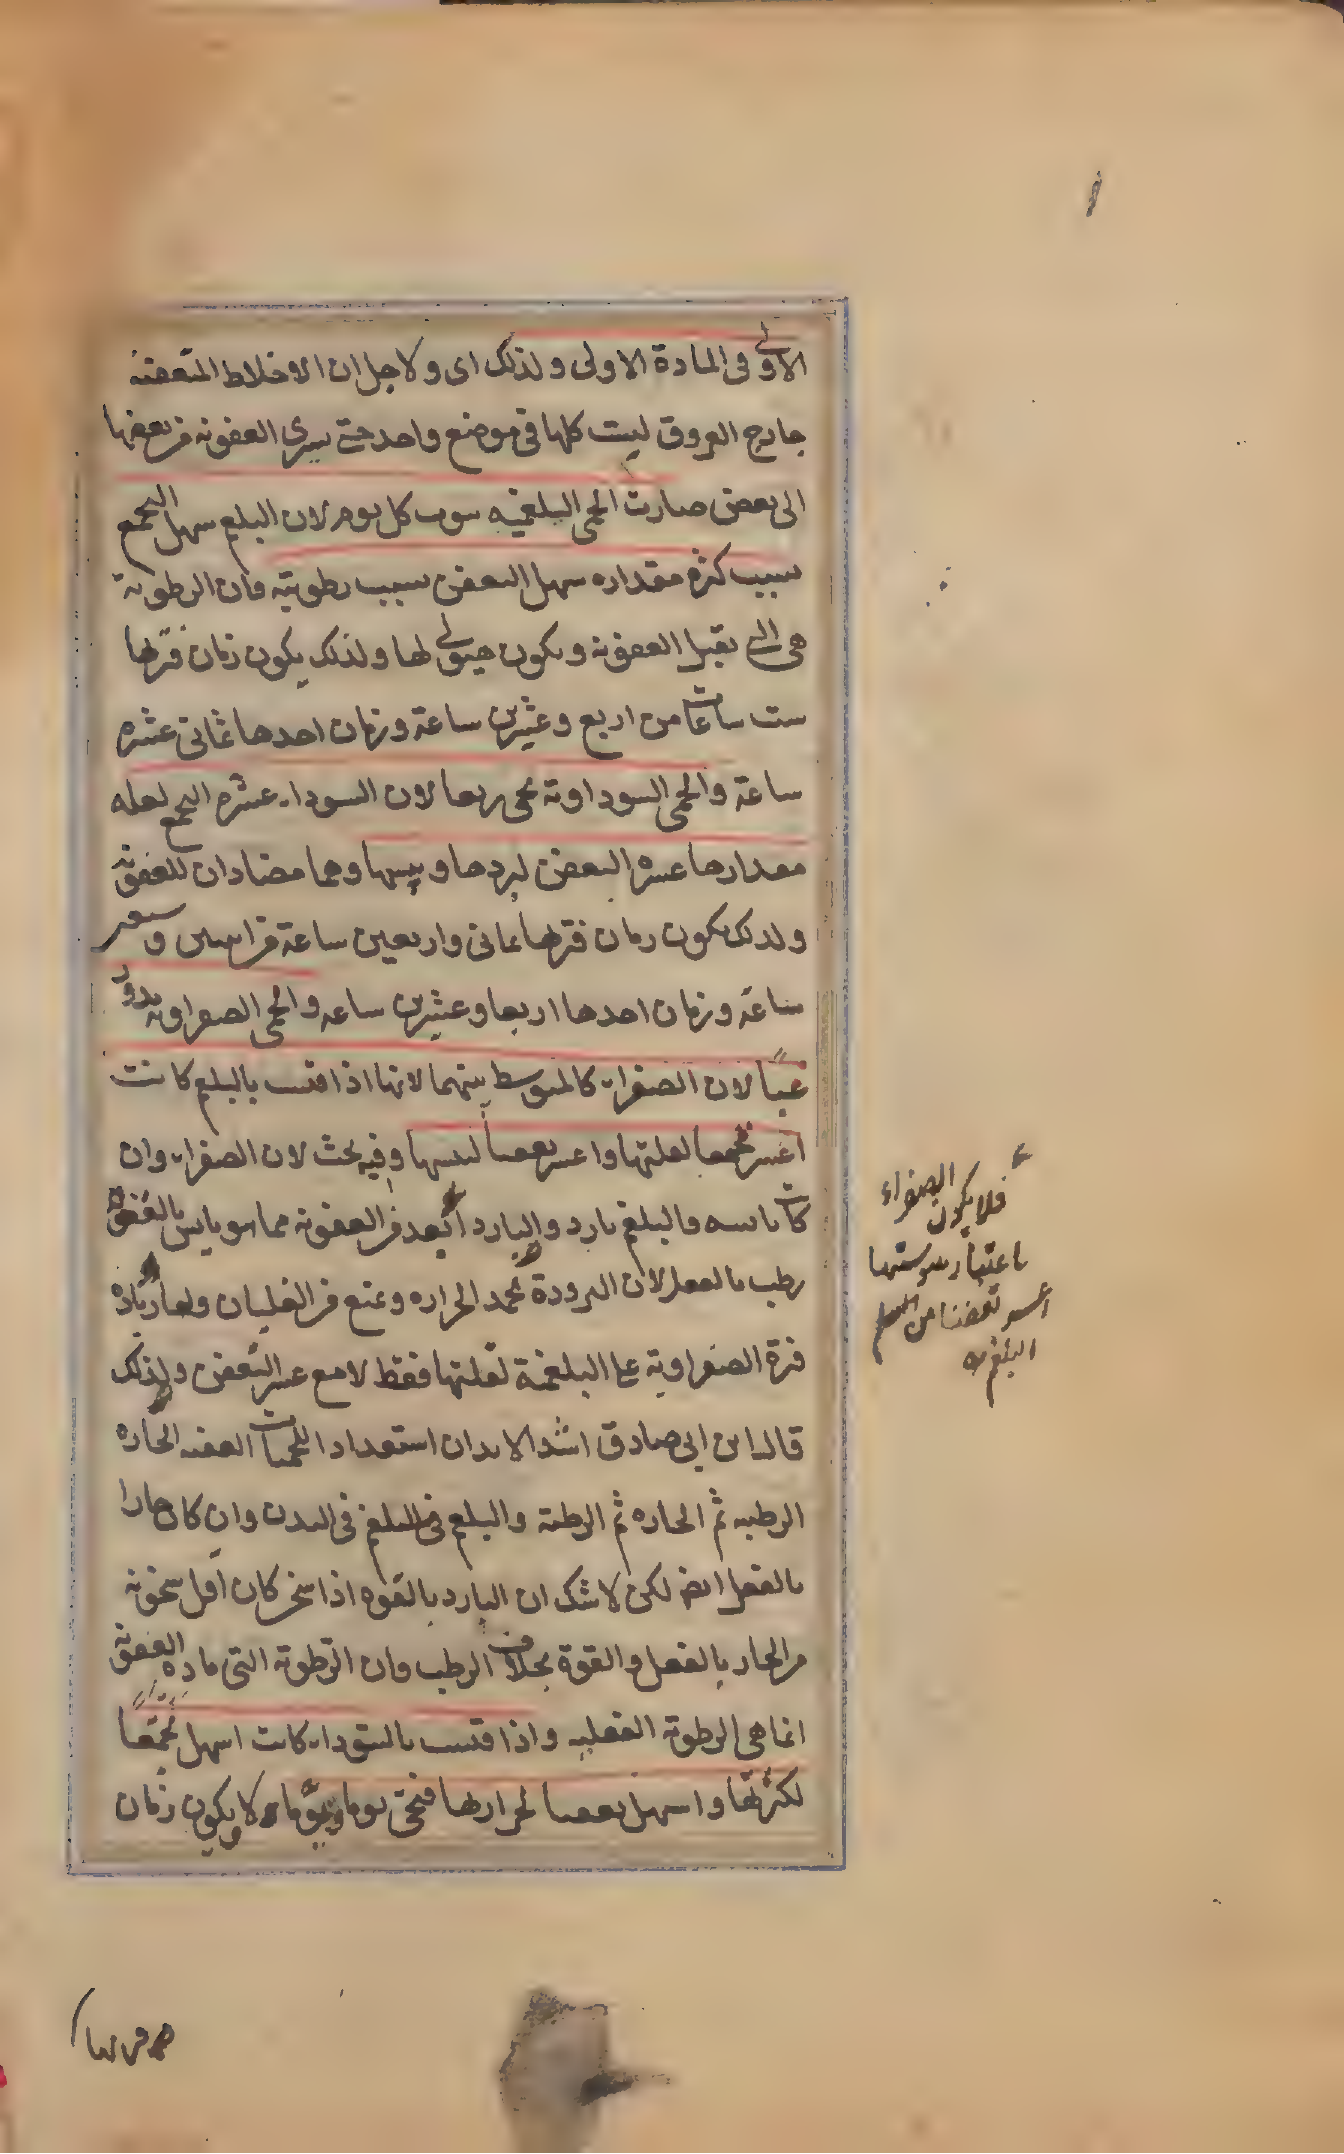 الاولى فى المادة الاولى ولذلك اى ولاجل ان الاخلاط المتعفنه
خارج العروق ليست كلها فى موضع واحد حتى يسرى العفونه من بعضها
الى بعض صارت الحمى البلغميه تنوب كل يوم لان البلغم سهل التجمع
بسبب كثرة مقداره سهل التعفن بسبب رطوبته فان الرطوبة
هى التى يقبل العفونة ويكون هيولى لها ولذلك يكون زمان فترتها
ست ساعات من اربع وعشرين ساعة وزمان اخذها ثمانى عشره
ساعة والحمى السوداوية تجى ربعا لان السوداء عسره التجمع لقله
مقدارها عسره التعفن لبردها ويبسها وهما مضادان للعفونة
ولذلك يكون زمان فترتها ثمانى واربعين ساعة من اثنين وسبعين
ساعة وزمان اخذها اربعا وعشرين ساعه والحمى الصفراوية تدور
غبّاً لان الصفراء كالمتوسط بينهما لانها اذا قيست بالبلغم كانت
اعسر تجمعا لقلتها واعسر تعفنا ليبسها وفيه بحث لان الصفراء وان
كانت يابسه فالبلغم بارد والبارد أبعد من العفونة مما هو يابس بالقوة
رطب بالفعل لان البرودة تجمد الحراره وتمنع من الغليان ولعل زيادة
فترة الصفراوية على البلغمية لقلتها فقط لا مع عسر التعفن ولذلك
قال ابن ابى صادق اشد الابدان استعدادا للحميات العفنه الحاره
الرطبه ثم الحاره ثم الرطبة والبلغم فى البدن وان كان حارا
بالفعل ايضا لكن لا شك ان البارد بالقوه اذا سخن كان اقل سخونة
من الحار بالفعل والقوة بخلاف الرطب فان الرطوبة التى مادة العفونة
انما هى الرطوبة الفعليه واذا قيست بالسوداء كانت اسهل تجمّعاً
لكثرتها واسهل تعفنا لحرارتها فتجى يوما ويوما لا ويكون زمان
فلا يكون الصفراء
باعتبار يبوستها
أعسر تعفنا من
البلغم
فترتها